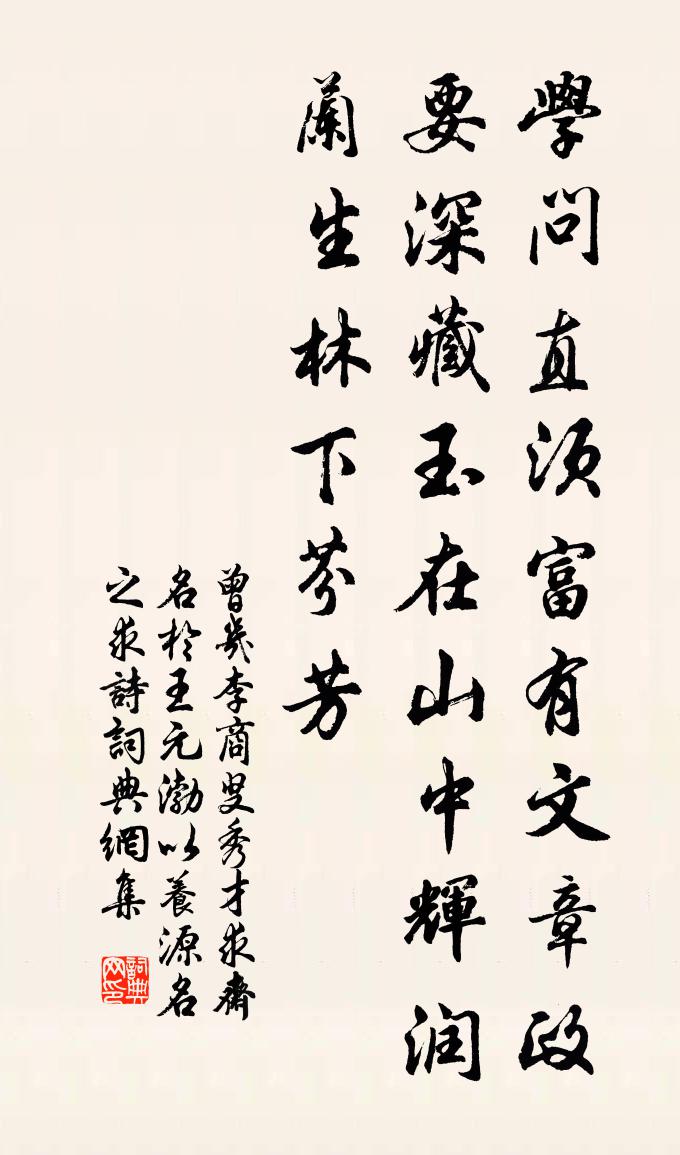 學問直須富有文章政
要深藏玉在山中輝润
蘭生林下芬芳
曾幾李商叟秀才求齋
名於王元渤以養源名
之求詩詞典網集
詞典网印